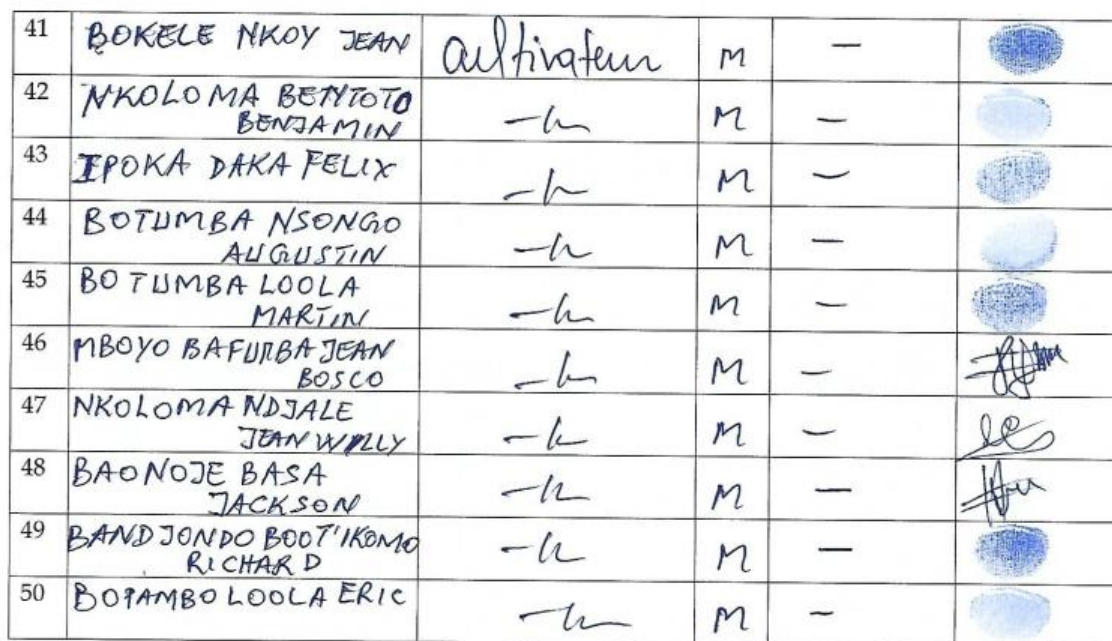 41 BOKELE NKOY JEAN cultivateur M —
42 NKOLOMA BETYTOTO
BENJAMIN —h— M —
43 IPOKA DAKA FELIX —h— M —
44 BOTUMBA NSONGO
AUGUSTIN —h— M —
45 BOTUMBA LOOLA
MARTIN —h— M —
46 MBOYO BAFURBA JEAN
BOSCO —h— M —
47 NKOLOMA NDJALE
JEAN WILLY —h— M —
48 BAONOJE BASA
JACKSON —h— M —
49 BANDJONDO BOOT'IKOMO
RICHARD —h— M —
50 BOPAMBO LOOLA ERIC —h— M —